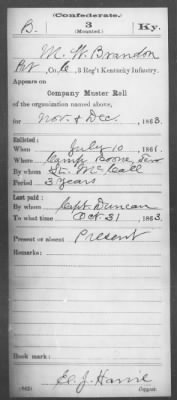 (Confederate.)
B. 3 Ky.
(Mounted.)
M. W. Brandon
Pvt, Co. C, 3 Reg't Kentucky Infantry.
Appears on
Company Muster Roll
of the organization named above,
for Nov. & Dec., 1863.
Enlisted:
When July 10, 1861.
Where Camp Boone, Tenn
By whom Lt. McCall
Period 3 Years
Last paid:
By whom Capt. Duncan
To what time Oct. 31, 1863.
Present or absent Present
Remarks:
Book mark:
(642) Copyist.